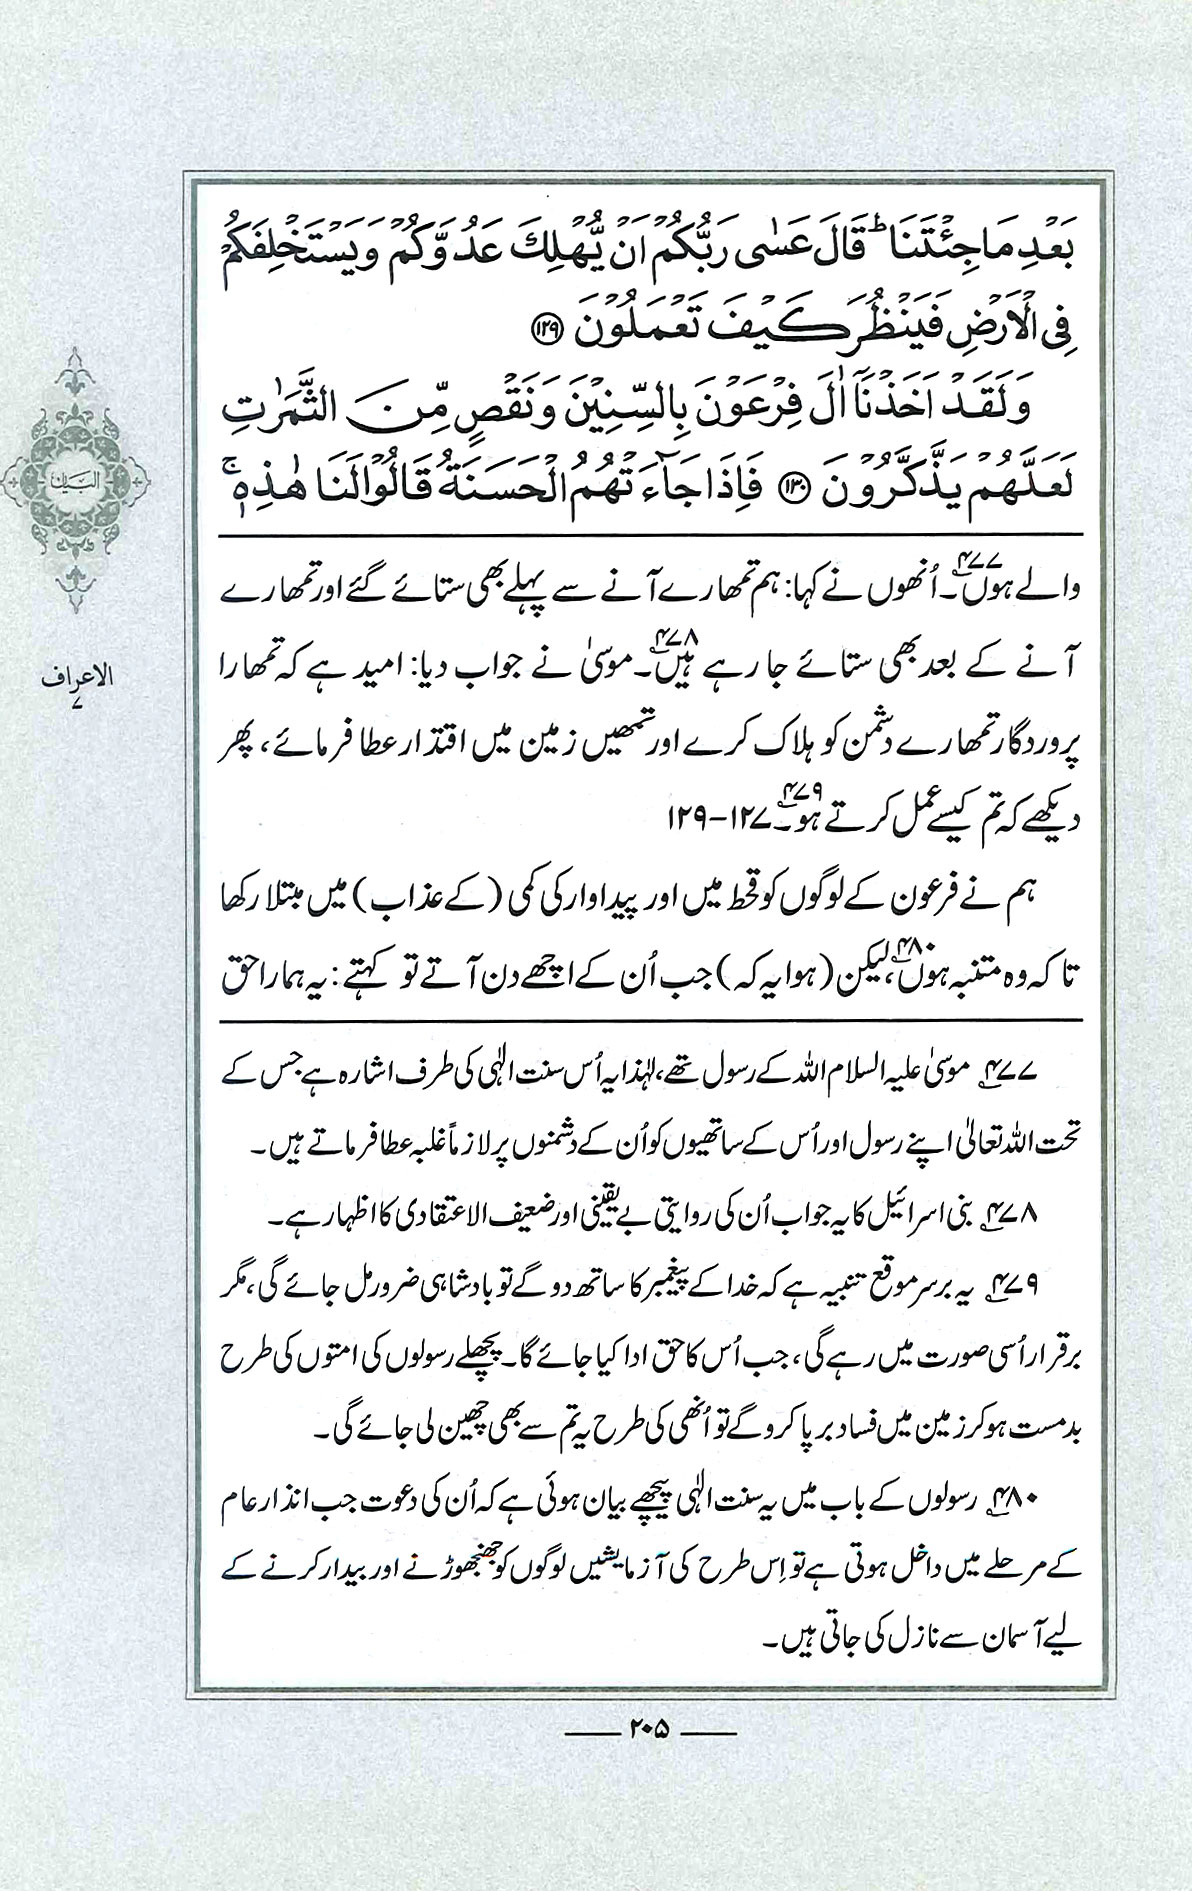 بَعْدِ مَا جِئْتَنَا ؕ قَالَ عَسٰی رَبُّکُمْ اَنْ یُّهْلِكَ عَدُوَّکُمْ وَیَسْتَخْلِفَکُمْ
فِی الْاَرْضِ فَیَنْظُرَ کَیْفَ تَعْمَلُوْنَ ﴿۱۲۹﴾
وَلَقَدْ اَخَذْنَاۤ اٰلَ فِرْعَوْنَ بِالسِّنِیْنَ وَنَقْصٍ مِّنَ الثَّمَرٰتِ
لَعَلَّهُمْ یَذَّکَّرُوْنَ ﴿۱۳۰﴾ فَاِذَا جَآءَتْهُمُ الْحَسَنَةُ قَالُوْا لَنَا هٰذِهٖ ۚ
والے ہوں۴۷۷۔ اُنھوں نے کہا: ہم تمھارے آنے سے پہلے بھی ستائے گئے اور تمھارے
آنے کے بعد بھی ستائے جا رہے ہیں۴۷۸۔ موسیٰ نے جواب دیا: امید ہے کہ تمھارا
پروردگار تمھارے دشمن کو ہلاک کرے اور تمھیں زمین میں اقتدار عطا فرمائے، پھر
دیکھے کہ تم کیسے عمل کرتے ہو۴۷۹۔ ۱۲۷-۱۲۹
ہم نے فرعون کے لوگوں کو قحط میں اور پیداوار کی کمی (کے عذاب) میں مبتلا رکھا
تاکہ وہ متنبہ ہوں۴۸۰، لیکن (ہوا یہ کہ) جب اُن کے اچھے دن آتے تو کہتے: یہ ہمارا حق
۴۷۷ موسیٰ علیہ السلام اللہ کے رسول تھے، لہٰذا یہ اُس سنت الٰہی کی طرف اشارہ ہے جس کے
تحت اللہ تعالیٰ اپنے رسول اور اُس کے ساتھیوں کو اُن کے دشمنوں پر لازماً غلبہ عطا فرماتے ہیں۔
۴۷۸ بنی اسرائیل کا یہ جواب اُن کی روایتی بے یقینی اور ضعیف الاعتقادی کا اظہار ہے۔
۴۷۹ یہ برسر موقع تنبیہ ہے کہ خدا کے پیغمبر کا ساتھ دو گے تو بادشاہی ضرور مل جائے گی، مگر
برقرار اُسی صورت میں رہے گی، جب اُس کا حق ادا کیا جائے گا۔ پچھلے رسولوں کی امتوں کی طرح
بدمست ہو کر زمین میں فساد برپا کرو گے تو اُنھی کی طرح یہ تم سے بھی چھین لی جائے گی۔
۴۸۰ رسولوں کے باب میں یہ سنت الٰہی پیچھے بیان ہوئی ہے کہ اُن کی دعوت جب انذار عام
کے مرحلے میں داخل ہوتی ہے تو اِس طرح کی آزمایشیں لوگوں کو جھنجھوڑنے اور بیدار کرنے کے
لیے آسمان سے نازل کی جاتی ہیں۔
البیان
الاعراف
۷
۲۰۵